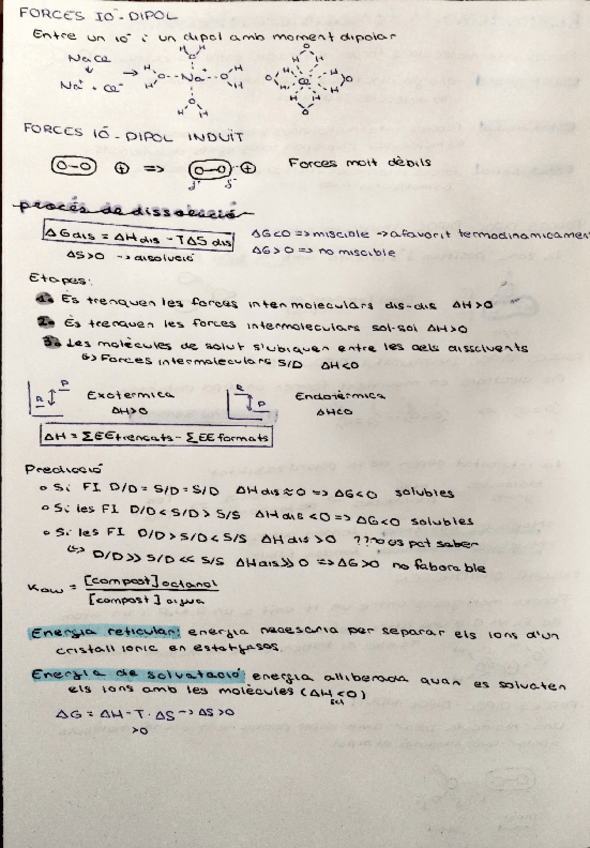 FORCES IÓ-DIPOL
Entre un ió i un dipol amb moment dipolar
NaCl
Na⁺ + Cl⁻
→ H H O H O Na⁺ O H H O H H
O H H O H H Cl⁻ H H O H H O
FORCES IÓ-DIPOL INDUÏT
O-O + => O-O + Forces molt dèbils
δ⁺ δ⁻
procés de dissolució
ΔGdis = ΔHdis - TΔSdis ΔG<0 => miscible → afavorit termodinamicament
ΔS>0 → dissolució ΔG>0 => no miscible
Etapes:
1. Es trenquen les forces intermoleculars dis-dis ΔH>0
2. Es trenquen les forces intermoleculars sol-sol ΔH>0
3. Les molècules de solut s'ubiquen entre les dels dissolvents
↳ Forces intermoleculars S/D ΔH<0
R P Exotèrmica R P Endotèrmica
ΔH>0 ΔH<0
ΔH = ΣEE trencats - ΣEE formats
Predicció
• Si FI D/D = S/D = S/D ΔHdis ≈ 0 => ΔG<0 solubles
• Si les FI D/D < S/D > S/S ΔHdis <0 => ΔG<0 solubles
• Si les FI D/D > S/D < S/S ΔHdis >0 ?? no es pot saber
↳ D/D >> S/D << S/S ΔHdis >> 0 => ΔG>0 no faborable
Kow = [compost] octanol
[compost] aigua
Energia reticular: energia necessària per separar els ions d'un
cristall iònic en estat gasos
Energia de solvatació energia alliberada quan es solvaten
els ions amb les molècules (ΔH<0)
sol
ΔG = ΔH - T·ΔS → ΔS>0
>0